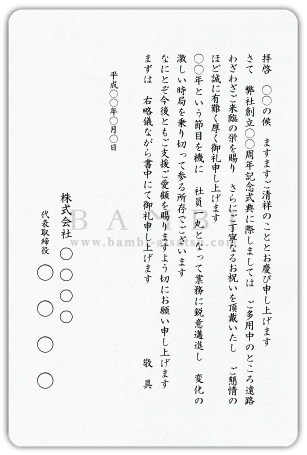 拝啓　○○の候　ますますご清祥のこととお慶び申し上げます
さて　弊社創立○○周年記念式典に際しましては　ご多用中のところ遠路
わざわざご来臨の栄を賜り　さらにご丁寧なるお祝いを頂戴いたし　ご懇情の
ほど誠に有難く厚く御礼申し上げます
○○年という節目を機に　社員一丸となって業務に鋭意邁進し　変化の
激しい時局を乗り切って参る所存でございます
なにとぞ今後ともご支援ご愛顧を賜りますよう切にお願い申し上げます
まずは　右略儀ながら書中にて御礼申し上げます
敬具
平成○○年○月○日
株式会社　○○○○
代表取締役　○○○○